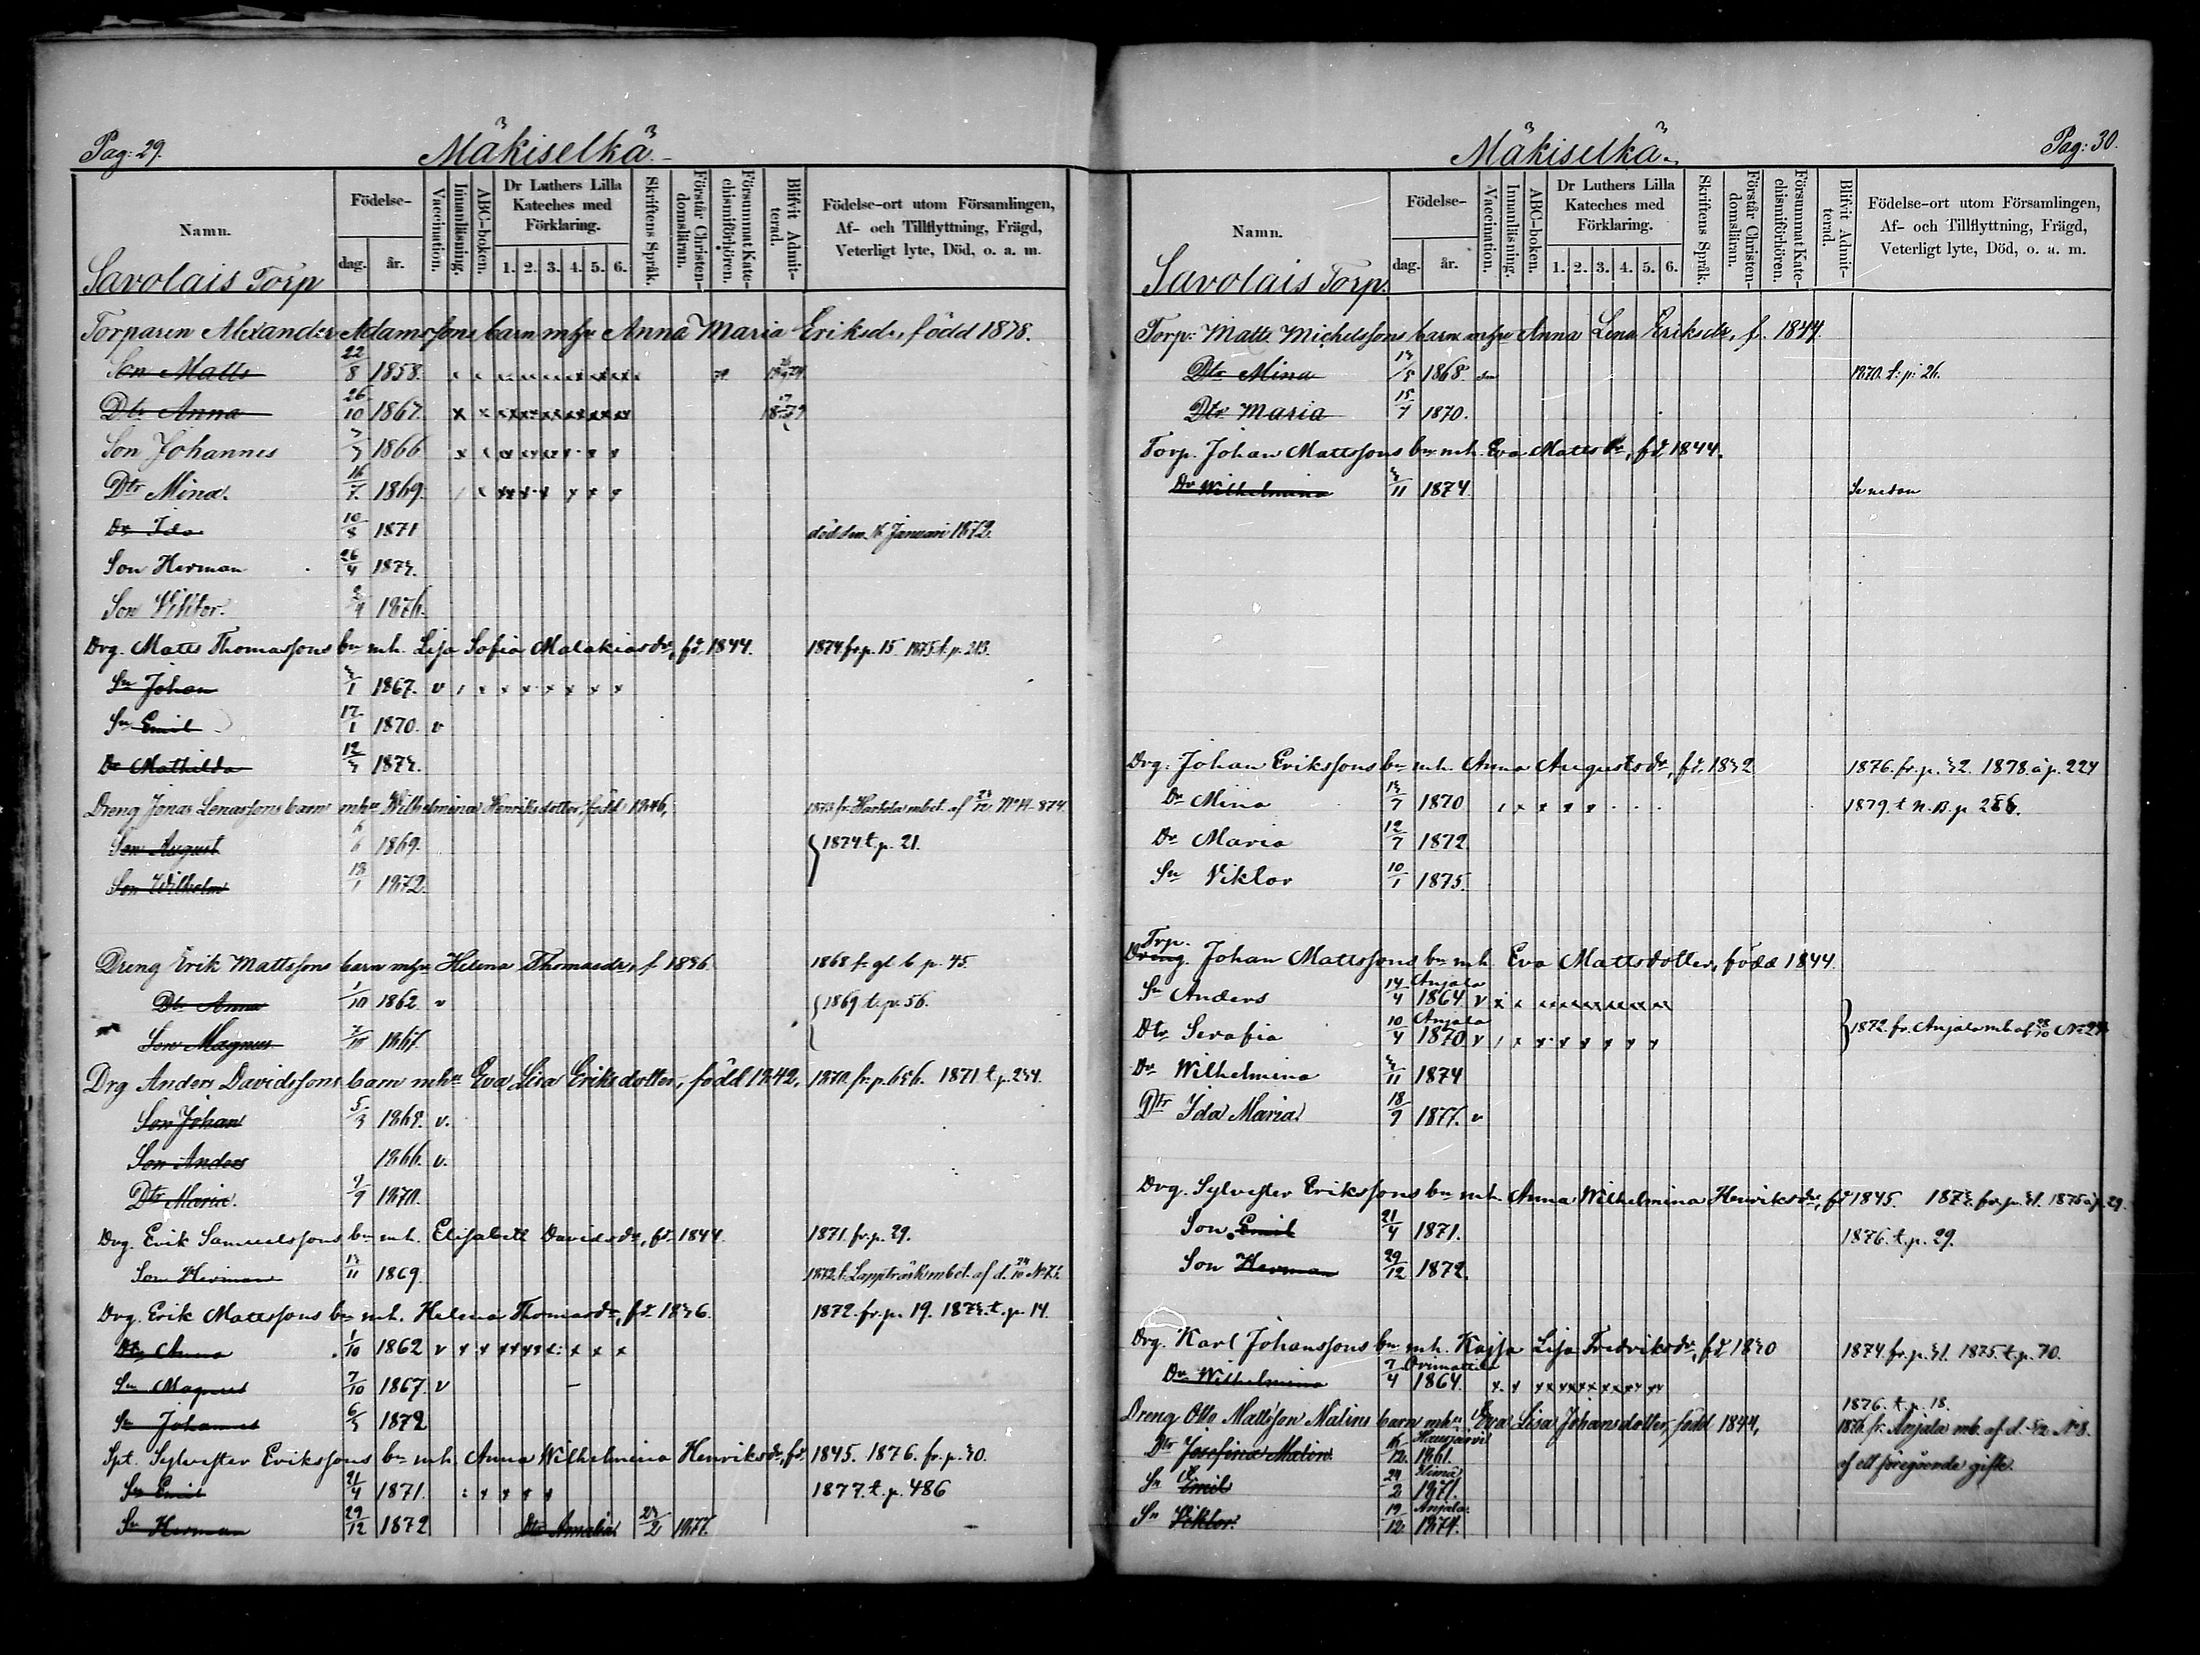 Pag: 29.
Mäkiselkä.
Namn.
Födelse-
dag.
år.
Vaccination.
Innanläsning.
ABC-boken.
Dr Luthers Lilla
Kateches med
Förklaring.
1. 2. 3. 4. 5. 6.
Skriftens Språk.
Förstår Christen-
domsläran.
Försummat Kate-
chismiförhören.
Blifvit Admit-
terad.
Födelse-ort utom Församlingen,
Af- och Tillflyttning, Frägd,
Veterligt lyte, Död, o. a. m.
Savolais Torp
Torparen Alexander Adamssons barn mhu Anna Maria Eriksdr, född 1838.
Son Matts 22/8 1858. x x
Dtr Anna 26/10 1862. x x
Son Johannes 1866 x
Dtr Mina. 16/7 1869.
Dr Ida 10/8 1871 död den 16 Januari 1872.
Son Herman 26/4 1873.
Son Viktor. 2/4 1876.
Drg. Matts Thomassons bn mh. Lisa Sofia Malakiasdr, fd. 1844. 1874 fr. p. 15 1875 t. p. 213.
Sn Johan 3/1 1867. v
Sn Emil 17/1 1870. v
Dr Mathilda 12/3 1873.
Dreng Jonas Lenassons barn mhu Wilhelmina Henriksdotter, född 1846,
Son August 1869. 1874 t. p. 21.
Son Wilhelm 1872
Dreng Erik Mattssons barn mhu Helena Thomasdr, f 1836. 1868 fr gl b p. 45.
Dtr Anna 1/10 1862. v 1869 t. p. 56.
Son Magnus 7/10 1867.
Drg Anders Davidssons barn mhu Eva Lisa Eriksdotter, född 1842, 1870. fr. p. 636. 1871 t. p. 234.
Son Johan 5/3 1863. v.
Son Anders 1866. v.
Dtr Maria. 9/9 1870.
Drg. Erik Samuelssons bn mh. Elisabeth Davidsdr, fd. 1844. 1871. fr. p. 29.
Son Herman 13/11 1869.
Drg. Erik Mattssons bn mh. Helena Thomasdr, fd. 1836. 1872. fr. p. 19. 1873. t. p. 14.
Dtr Anna 1/10 1862 v x x
Sn Magnus 7/10 1867. v
Sn Johannes 6/3 1872
Spt. Sylvester Erikssons bn mh. Anna Wilhelmina Henriksdr, fd. 1845. 1876. fr. p. 30.
Sn Emil 21/4 1871. 1877. t. p. 486
Sn Herman 29/12 1872 Dtr Amalia 23/2 1877.
Pag: 30.
Mäkiselkä.
Namn.
Födelse-
dag.
år.
Vaccination.
Innanläsning.
ABC-boken.
Dr Luthers Lilla
Kateches med
Förklaring.
1. 2. 3. 4. 5. 6.
Skriftens Språk.
Förstår Christen-
domsläran.
Försummat Kate-
chismiförhören.
Blifvit Admit-
terad.
Födelse-ort utom Församlingen,
Af- och Tillflyttning, Frägd,
Veterligt lyte, Död, o. a. m.
Savolais Torp.
Torp: Matts Michelssons barn mhu Anna Lena Eriksdr, f. 1844.
Dtr Mina 13/8 1868. 1870. t: p: 26.
Dtr Maria 15/7 1870.
Torp. Johan Mattssons bn mh. Eva Mattsdr, fd. 1844.
Dr Wilhelmina 3/11 1874. Se nedan
Drg. Johan Erikssons bn mh. Anna Augustsdr, fd. 1832 1876. fr. p. 32. 1878. à p. 224
Dr Mina 13/7 1870 1879. t N. B. p 266.
Dr Maria 12/7 1872
Sn Viktor 10/1 1875.
Trp.
Dreng. Johan Mattssons bn mh. Eva Mattsdotter, född 1844.
Sn Anders 14/4 Anjala 1864 v x x
Dtr Serafia 10/4 Anjala 1870 v 1872. fr. Anjala mb af
Dr Wilhelmina 3/11 1874
Dtr Ida Maria. 18/9 1877. v
Drg. Sylvester Erikssons bn mh. Anna Wilhelmina Henriksdr, fd 1845. 1873. fr. p. 31. 1875 à p. 29.
Son Emil 21/4 1871. 1876. t. p. 29.
Son Herman 29/12 1872.
Drg. Karl Johanssons bn mh. Kajsa Lisa Fredriksdr, fd. 1830 1874 fr. p. 31. 1875. t. p. 70.
Dr Wilhelmina 7/4 Orimattila 1864.
1876. t. p. 18.
Dreng Otto Mattsson Malins barn mhu Eva Lisa Johansdotter, född 1844, 1876. fr. Anjala mb. af d.
Dtr Josefina Malin. 16/12 Hausjärvi 1861. af ett föregående gifte.
Sn Emil 24/2 1871.
Sn Viktor. 19/12 Anjala. 1874.